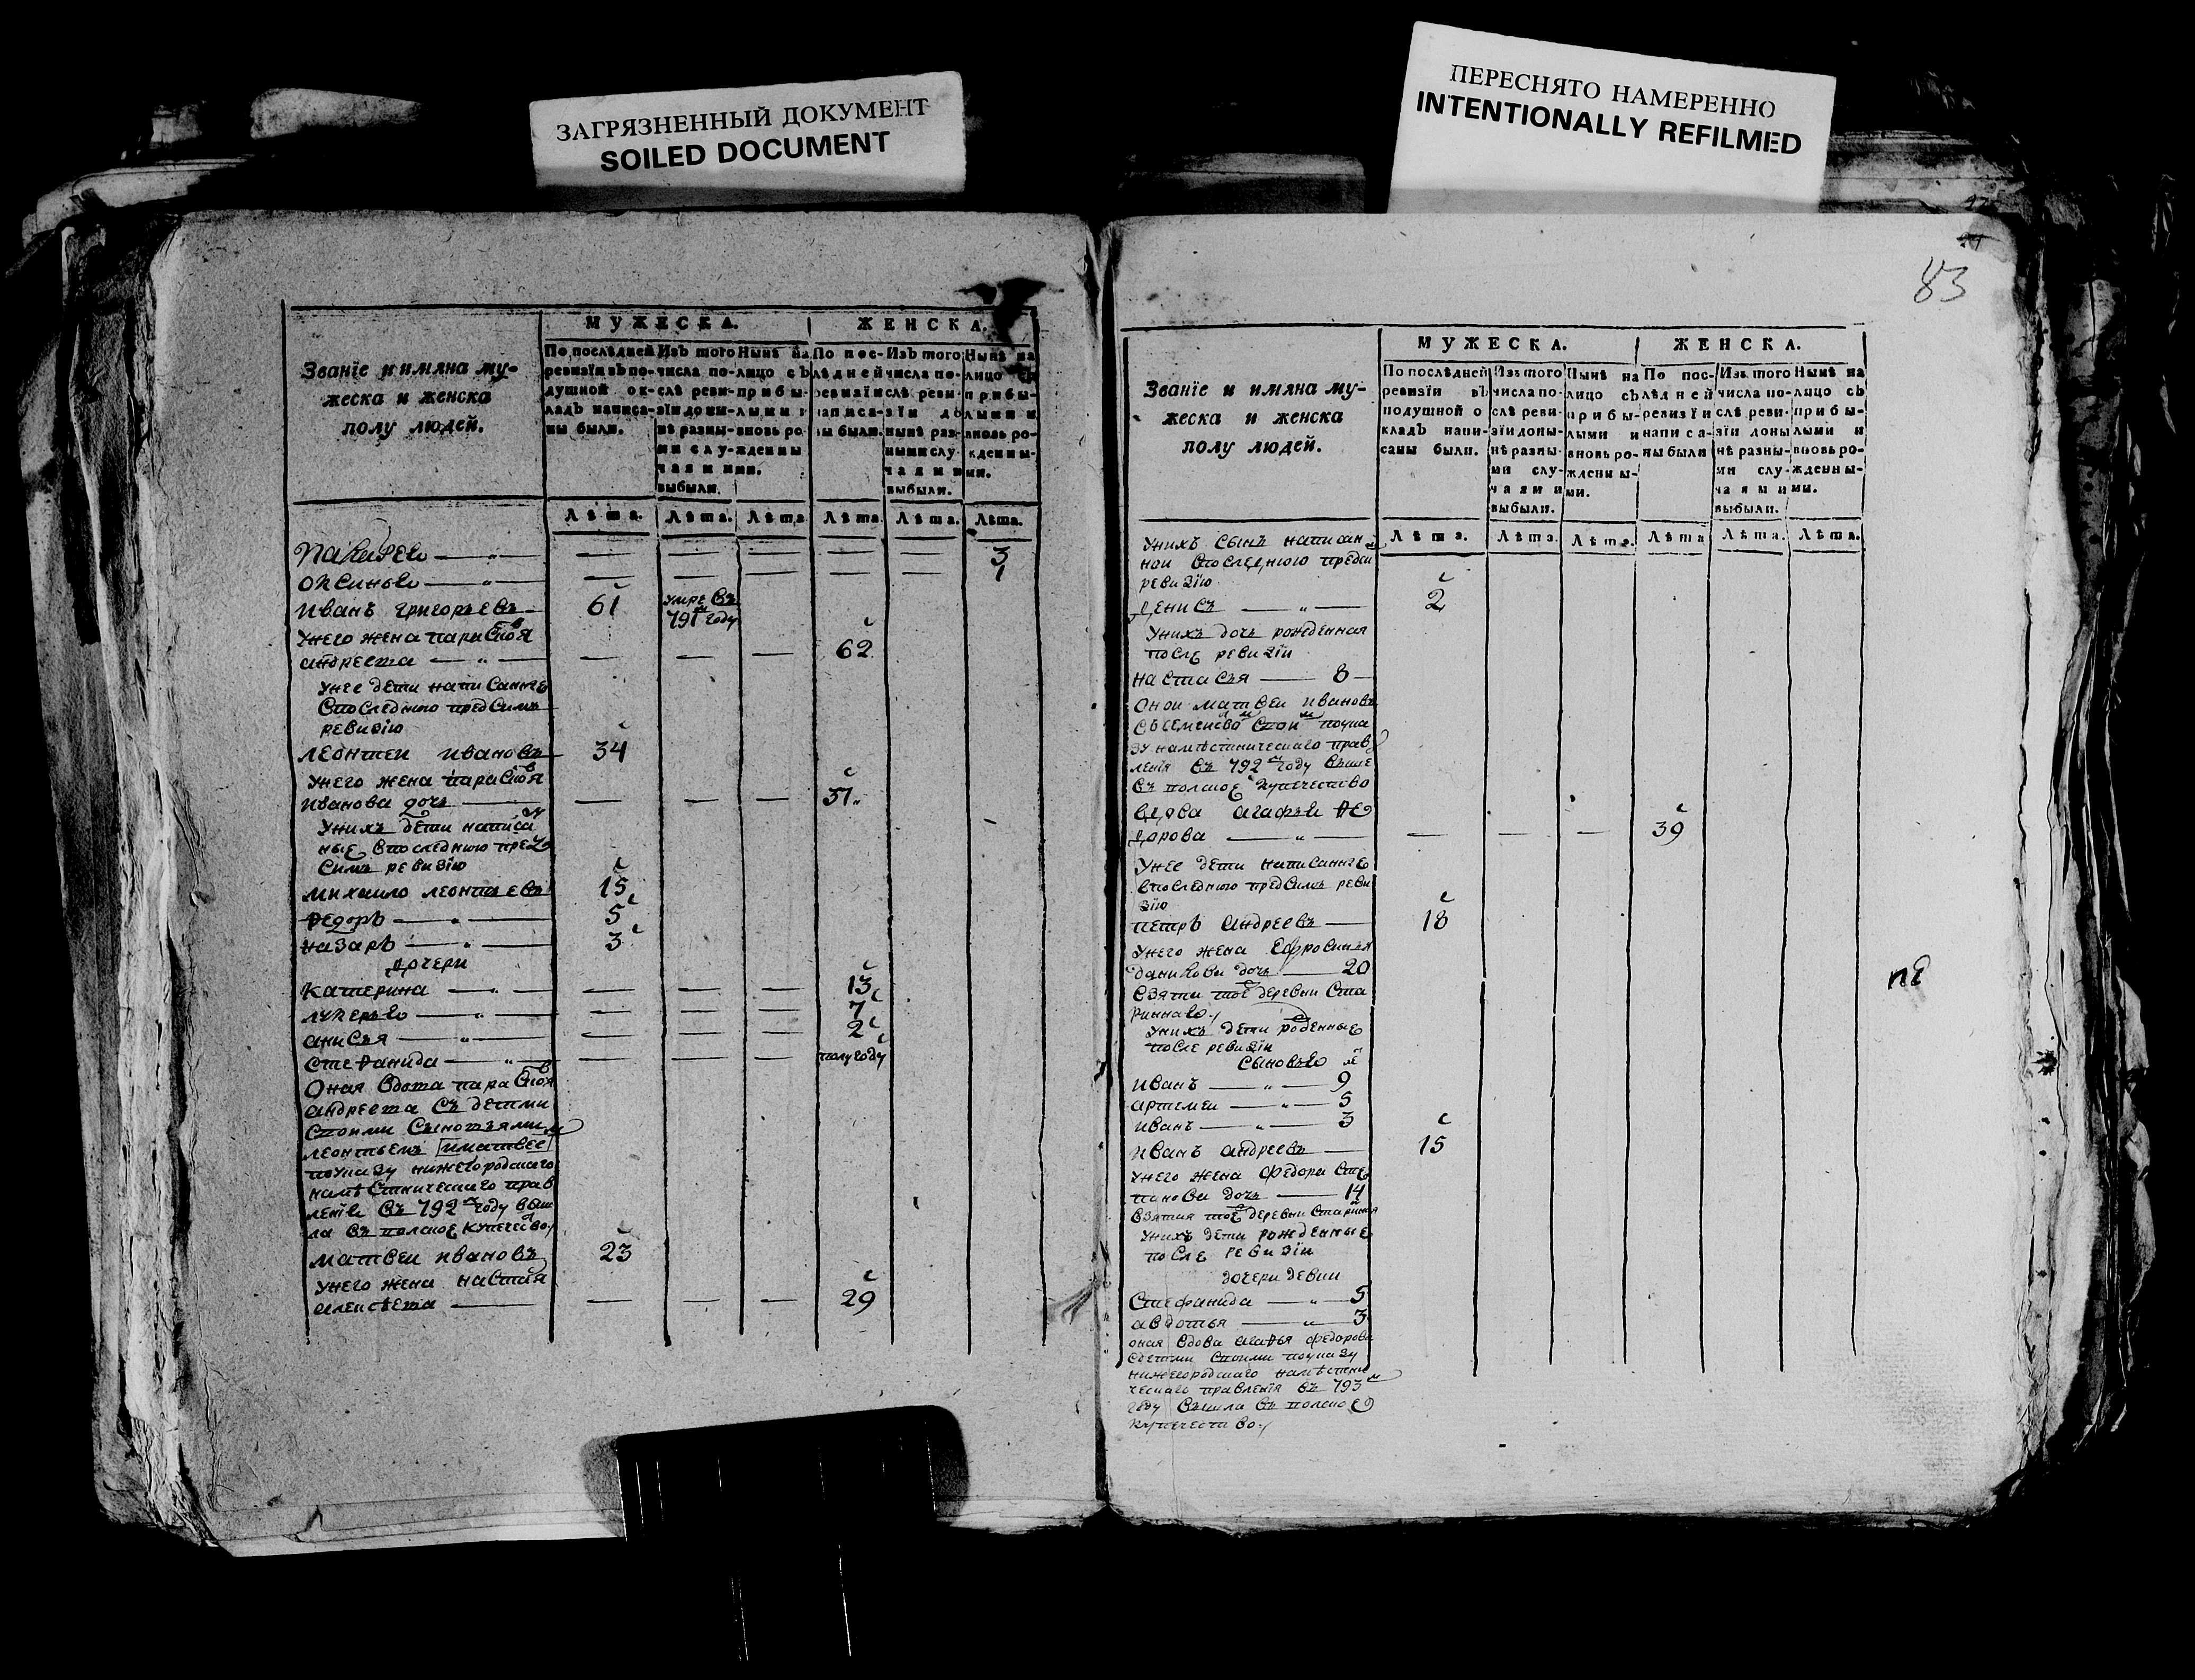 ЗАГРЯЗНЕННЫЙ ДОКУМЕНТ
SOILED DOCUMENT
ПЕРЕСНЯТО НАМЕРЕННО
INTENTIONALLY REFILMED
83
МУЖЕСКА. ЖЕНСКА.
Званїе и имяна му-
жеска и женска
полу людей.
По послѣдней ревизїи въ по-душной ок-ладъ написа-ны были.
Изъ того числа по-слѣ реви-зїи доны-нѣ разны-ми слу-чаями выбыли.
Нынѣ на лицо съ прибы-лыми и вновь ро-жденны-ми.
По пос-лѣдней ревизїи написа-ны были.
Изъ того числа по-слѣ реви-зїи до нынѣ раз-ными слу-чаями выбыли.
Нынѣ на лицо съ прибы-лыми и вновь ро-жденны-ми.
Лѣта. Лѣта. Лѣта. Лѣта. Лѣта. Лѣта.
— — — — — 3
— — — — — 1
иванъ григорьевъ 61 умре въ 791м году
унего жена парасковя
андреева — — — 62
унее дети написанные
впоследнюю предсимъ
ревизїю
леонтеи ивановъ 34
унего жена парасковя
иванова дочь — — — 31
унихъ дети написа
ные впоследнюю пред
симъ ревизїю
михаило леонтьевъ 15
федоръ — 5
назаръ — 3
дочери
катерина — — — 13
лукерья — — — 7
анисья — — — 2
стефанида — — — полугоду
Оная вдова парасковя
андреева съ детми
своими сыновьями
леонтьемъ и матвее
поуказу нижегородскаго
намѣстническаго прав
ленїя въ 792м году выш
ла въ полское купечество
матвеи ивановъ 23
унего жена настася
алексѣева — — — 29
МУЖЕСКА. ЖЕНСКА.
Званїе и имяна му-
жеска и женска
полу людей.
По послѣдней ревизїи въ подушной о кладъ напи-саны были.
Изъ того числа по-слѣ реви-зїи доны-нѣ разны-ми слу-чаями выбыли.
Нынѣ на лицо съ прибы-лыми и вновь ро-жденны-ми.
По пос-лѣдней ревизїи написа-ны были
Изъ того числа по-слѣ реви-зїи доны нѣ разны-ми слу-чаями выбыли.
Нынѣ на лицо съ прибы-лыми и вновь ро-жденны-ми.
Лѣта. Лѣта. Лѣта. Лѣта Лѣта. Лѣта.
унихъ сынъ написан
нои впоследнюю предси
ревизїю
денисъ — 2
унихъ дочь рожденная
после ревизїи
настасья — 8
Онои матвеи ивановъ
поука
зу намѣстническаго прав
ленїя въ 792м году выше
въ полское купечество
вдова агафья фе
дорова — — — 39
унее дети написанные
впоследнюю предсимъ реви
зїю
петръ андреевъ — 18
унего жена Ефросинья
данилова дочь — 20
взята тоё деревни Ста
унихъ дети роденные
после ревизїи
сыновья
иванъ — 9
артемеи — 5
иванъ — 3
иванъ андреевъ — 15
унего жена федора сте
панова дочь — 14
взятая тоё деревни
унихъ дети рожденные
после ревизїи
дочери девки
Стефанида — 5
авдотья — 3
оная вдова агафья федорова
сдетми своими поуказу
нижегородскаго намѣстни
ческаго правленїя въ 793м
году вышла въ полское
купечество